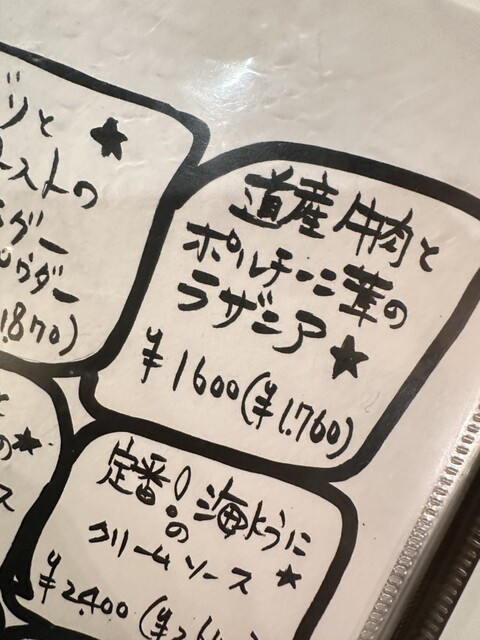 ツと★
ーストの
ラグー
パウダー
1,870)
道産牛肉と
ポルチーニ茸の
ラザニア★
¥1600(¥1,760)
と
の★
ス
定番!海の
ように
クリームソース★
¥2,400(¥2,6